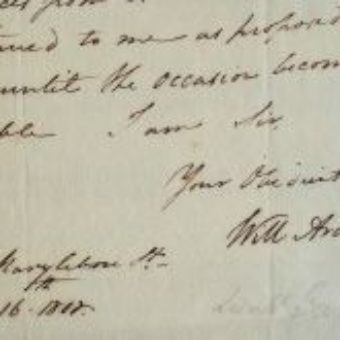 to me as propos
until the occasion becom
ble I am Sir,
Your Obedient
Will Ar
Marylebone St.
th
16. 1808.